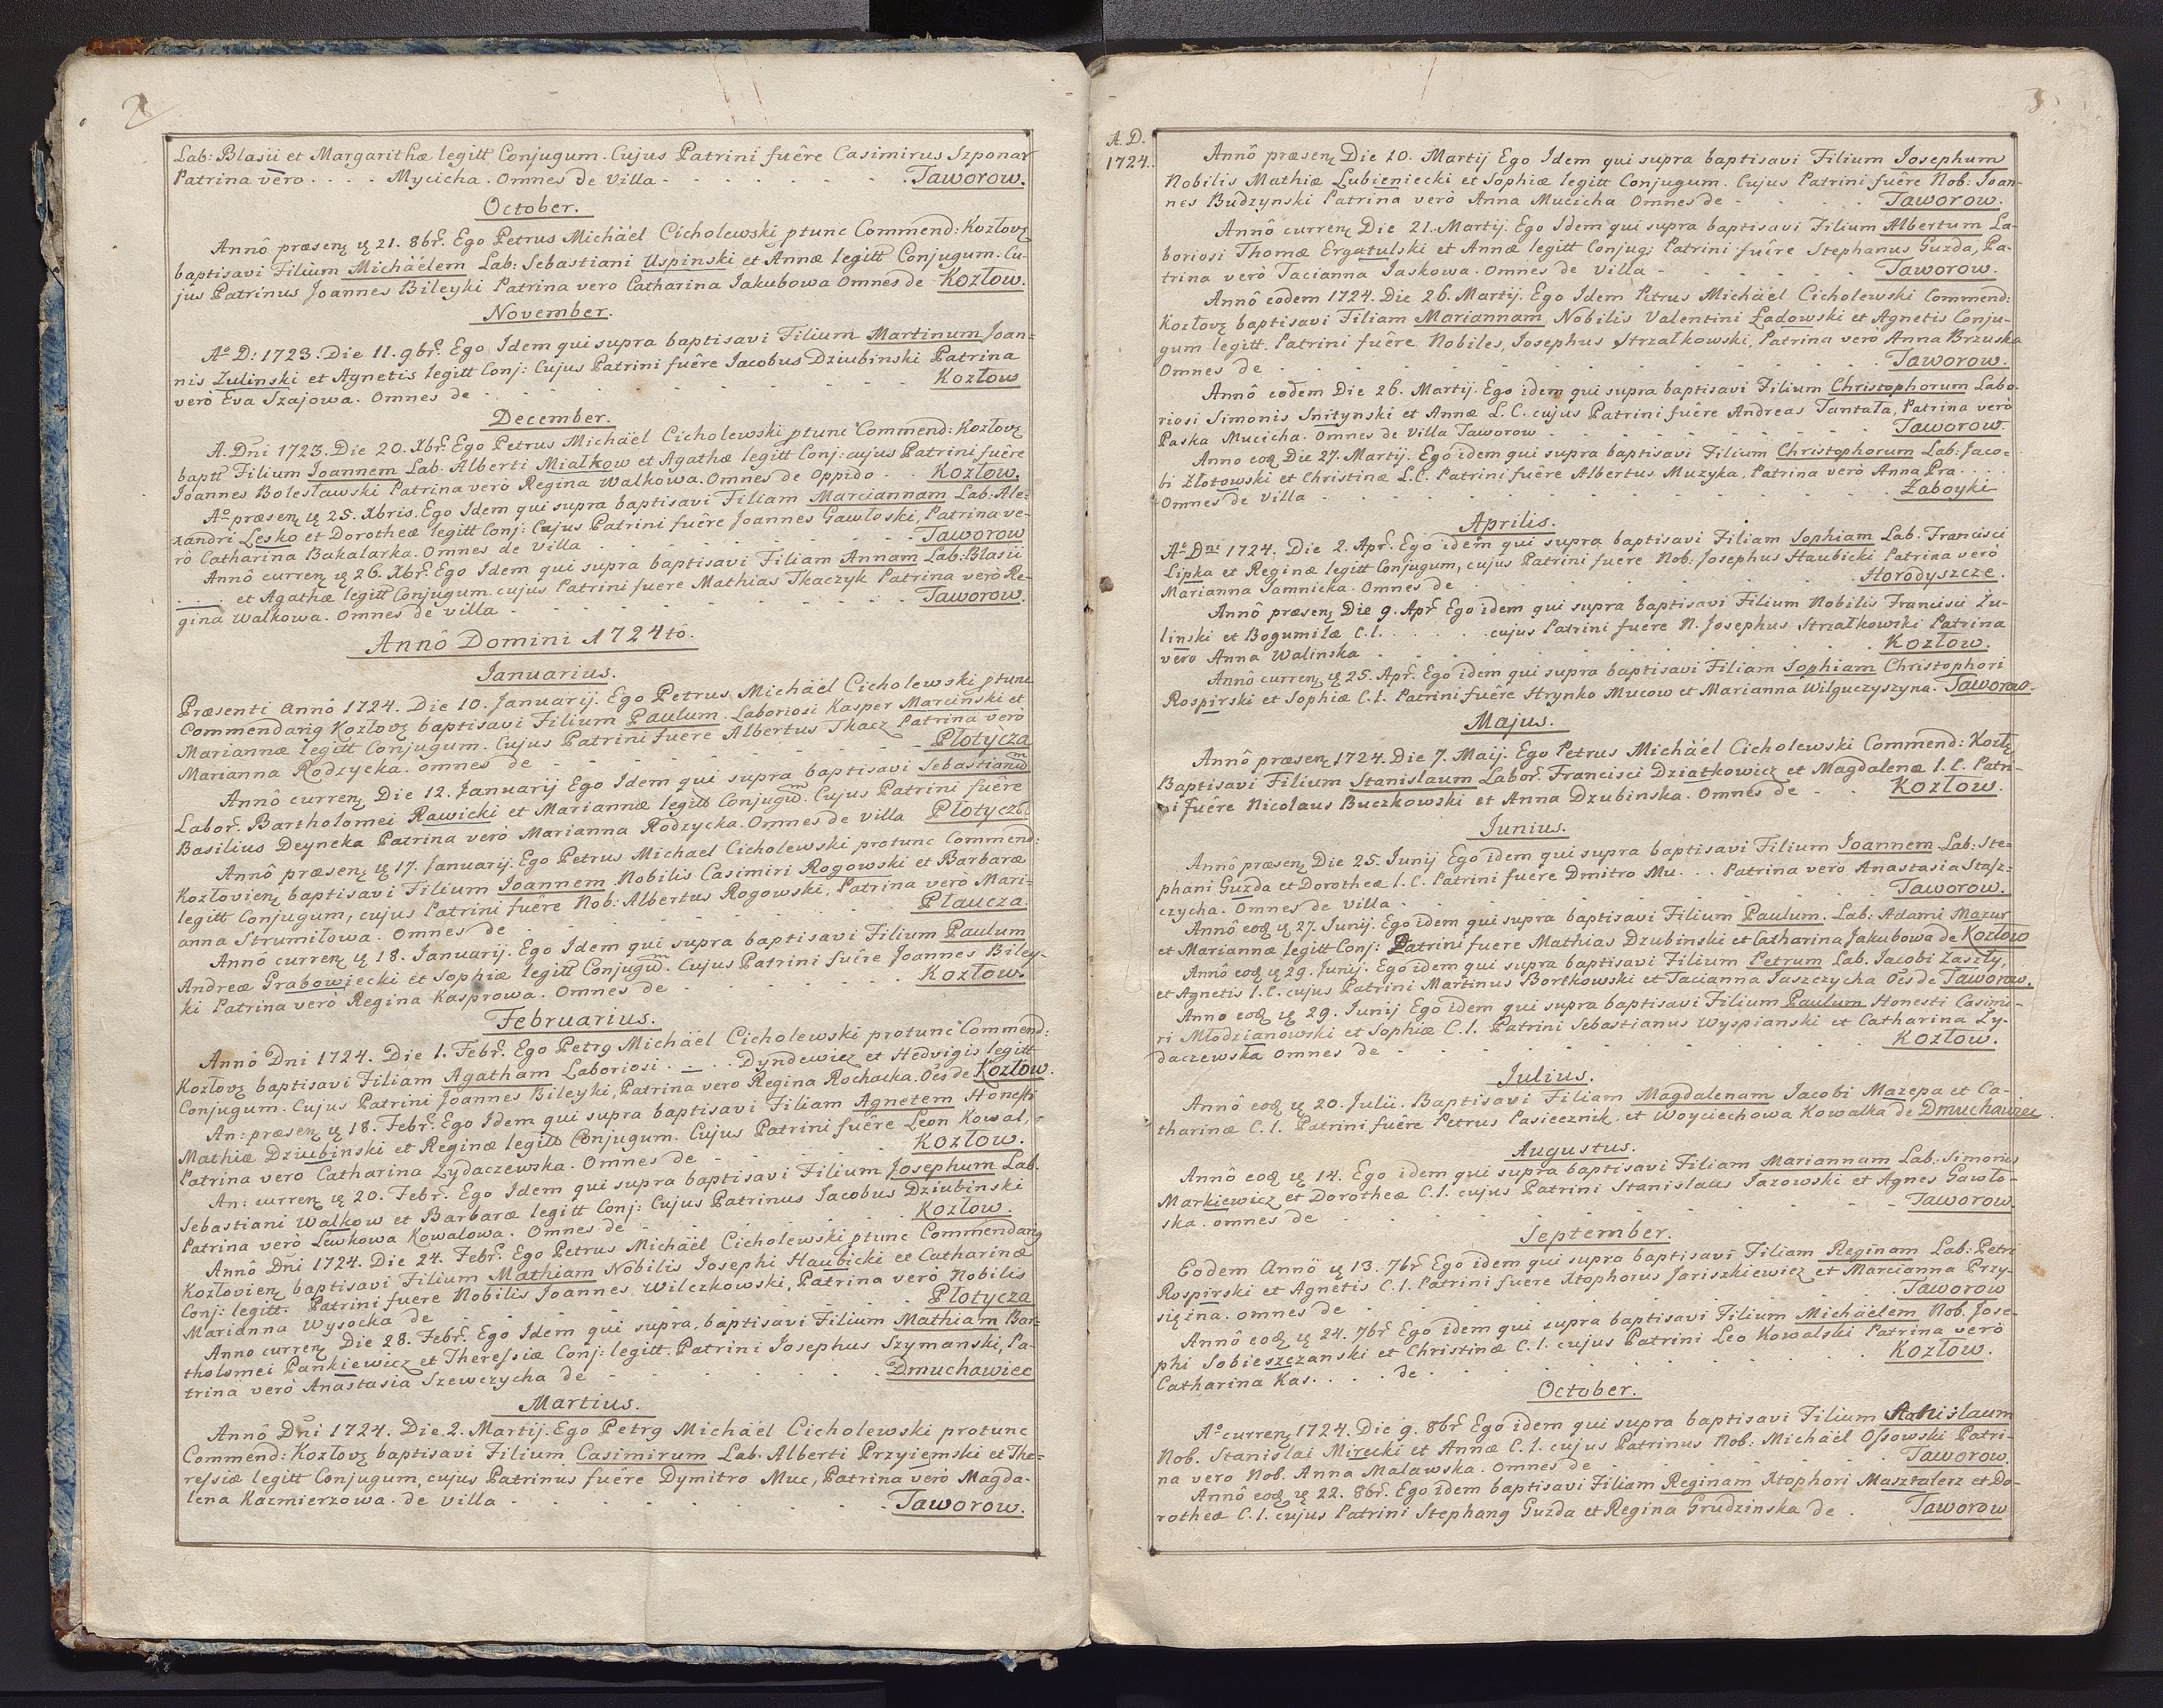 2
Lab: Blasii et Margarithæ legitt Conjugum. Cujus Patrini fuêre Casimirus Szponar
Patrina vero . . . . Mycicha. Omnes de Villa - - - - - - . Taworow.
October.
Annô præsenʒ ɥ 21. 8br̃. Ego Petrus Michäel Cicholewski ptunc Commend: Kozlovʒ
baptisavi Filium Michäelem Lab: Sebastiani Uspinski et Annæ legitt Conjugum. Cu-
jus Patrinus Joannes Bileyki Patrina vero Catharina Jakubowa Omnes de Kozłow.
November.
Aº D: 1723. Die 11. 9br̃. Ego Idem qui supra baptisavi Filium Martinum Joan=
nis Zulinski et Agnetis legitt Conj: Cujus Patrini fuêre Jacobus Dziubinski Patrina
verò Eva Szajowa. Omnes de - - - - - - - - Kozłow
December.
A. Dni 1723. Die 20. Xbr̃. Ego Petrus Michäel Cicholewski ptunc Commend: Kozłovʒ
baptt Filium Joannem Lab. Alberti Miałkow et Agathæ legitt Conj. cujus Patrini fuêre
Joannes Bolesławski Patrina verò Regina Walkowa. Omnes de Oppido . . Kozłow.
Aº præsenʒ ɥ 25. Xbris. Ego Idem qui supra baptisavi Filiam Marciannam Lab: Ale-
xandri Lesko et Dorotheæ legitt Conj: Cujus Patrini fuêre Joannes Gawłoski, Patrina ve-
rò Catharina Bakalarka. Omnes de Villa - - - - - - - Taworow
Annô currenʒ ɥ 26. Xbr̃. Ego Idem qui supra baptisavi Filiam Annam Lab: Blasii
. . . . et Agathæ legitt Conjugum. cujus Patrini fuere Mathias Tkaczyk Patrina verò Re-
gina Walkowa. Omnes de villa - - - - - - - - Taworow.
Annô Domini 1724tô.
Januarius.
Præsenti Annô 1724. Die 10. Januarij. Ego Petrus Michäel Cicholewski ptunc
Commendarig Kozłovʒ baptisavi Filium Paulum. Laboriosi Kasper Marcinski et
Mariannæ legitt Conjugum. Cujus Patrini fuere Albertus Tkacz Patrina verò
Marianna Rodzycka. omnes de - - - - - - - Plotycza
Annô currenʒ Die 12. Januarij Ego Idem qui supra baptisavi Sebastianum
Labor̃. Bartholomei Rawicki et Mariannæ legitt Conjugum. Cujus Patrini fuêre
Basilius Deyneka Patrina verò Marianna Rodzycka. Omnes de villa Płotycza.
Annô præsenʒ ɥ 17. Januarij. Ego Petrus Michael Cicholewski protunc Commend:
Kozłovienʒ baptisavi Filium Joannem Nobilis Casimiri Rogowski et Barbaræ
legitt Conjugum, cujus Patrini fuêre Nob: Albertus Rogowski, Patrina verò Mari-
anna Strumiłowa. Omnes de - - - - - - - Plaucza.
Annô currenʒ ɥ 18. Januarij. Ego Idem qui supra baptisavi Filium Paulum
Andreæ Grabowiecki et Sophiæ legitt Conjugum. Cujus Patrini fuêre Joannes Biley-
ki Patrina verò Regina Kasprowa. Omnes de - - - - - Kozłow.
Februarius.
Annô Dni 1724. Die 1. Febr̃. Ego Petrg Michäel Cicholewski protunc Commend:
Kozlovʒ baptisavi Filiam Agatham Laboriosi . . . . Dyndewicz et Hedvigis legitt
Conjugum. Cujus Patrini Joannes Bileyki, Patrina vero Regina Rochacka. Oẽs de Kozłow.
An: præsenʒ ɥ 18. Febr̃. Ego Idem qui supra baptisavi Filiam Agnetem Honesti
Mathiæ Dziubinski et Reginæ legitt Conjugum. Cujus Patrini fuêre Leon Kowal,
Patrina vero Catharina Żydaczewska. Omnes de - - - - Kozłow.
An: currenʒ ɥ 20. Febr̃. Ego Idem qui supra baptisavi Filium Josephum Lab.
Sebastiani Walkow et Barbaræ legitt Conj: Cujus Patrinus Jacobus Dziubinski
Patrina verò Lewkowa Kowalowa. Omnes de - - - - - Kozlow.
Annô Dni 1724. Die 24. Febr̃. Ego Petrus Michäel Cicholewski ptunc Commendarig
Kozlovienʒ baptisavi Filium Mathiam Nobilis Josephi Haubicki et Catharinæ
Conj: legitt. Patrini fuere Nobilis Joannes Wilczkowski, Patrina verò Nobilis
Marianna Wysocka de - - - - - - - - Plotycza
Anno currenʒ Die 28. Febr̃. Ego Idem qui supra, baptisavi Filium Mathiam Bar-
tholomei Pankiewicz et Theressiæ Conj: legitt. Patrini Josephus Szymanski, Pa-
trina verò Anastasia Szewczycha de - - - - - - Dmuchawiec
Martius.
Annô Dni 1724. Die 2. Martij. Ego Petrg Michäel Cicholewski protunc
Commend: Kozłovʒ baptisavi Filium Casimirum Lab. Alberti Przyiemski et The=
ressiæ legitt Conjugum, cujus Patrinus fuêre Dymitro Muc, Patrina verò Magda-
lena Kazmierzowa. de villa - - - - - - - - Taworow.
A. D.
1724.
Annô præsenʒ Die 20. Martij Ego Idem qui supra baptisavi Filium Josephum
Nobilis Mathiæ Lubieniecki et Sophiæ legitt Conjugum. Cujus Patrini fuêre Nob: Joan-
nes Budzynski Patrina verò Anna Mucicha Omnes de - - - Taworow.
Annô currenʒ Die 21. Martij. Ego Idem qui supra baptisavi Filium Albertum La-
boriosi Thomæ Ergatulski et Annæ legitt Conjugʒ Patrini fuêre Stephanus Guzda, Pa-
trina verò Tacianna Jaskowa. Omnes de Villa - - - - - Taworow.
Annô eodem 1724. Die 26. Martij. Ego Idem Petrus Michäel Cicholewski Commend:
Kozłovʒ baptisavi Filiam Mariannam Nobilis Valentini Ładowski et Agnetis Conju-
gum legitt. Patrini fuêre Nobiles, Josephus Strzałkowski, Patrina verò Anna Brzuska
Omnes de - - - - - - - - - - Taworow.
Annô eodem Die 26. Martij. Ego idem qui supra baptisavi Filium Christophorum Labo-
riosi Simonis Snitynski et Annæ L. C. cujus Patrini fuêre Andreas Tantała, Patrina verò
Paska Mucicha. Omnes de Villa Taworow - - - - - - Taworow.
Anno eoḍ Die 27. Martij. Ego idem qui supra baptisavi Filium Christophorum Lab: Jaco-
bi Złotowski et Christinæ L. C. Patrini fuêre Albertus Muzyka, Patrina verò Anna Pra. . . .
Omnes de Villa - - - - - - - - - Zaboyki
Aprilis.
Aº Dni 1724. Die 2. Apr̃. Ego idem qui supra baptisavi Filiam Sophiam Lab. Francisci
Lipka et Reginæ legitt Conjugum, cujus Patrini fuere Nob: Josephus Haubicki Patrina verò
Marianna Jamnicka. Omnes de - - - - - - - Horodyszcze.
Annô præsenʒ Die 9. Apr̃ Ego idem qui supra baptisavi Filium Nobilis Francisci Zu-
linski et Bogumilæ C. l. . . . . . . cujus Patrini fuêre N. Josephus Strzałkowski Patrina
vero Anna Walinska - - - - - - - - - Kozłow.
Annô currenʒ ɥ 25. Apr̃. Ego idem qui supra baptisavi Filiam Sophiam Christophori
Rospirski et Sophiæ C. l. Patrini fuêre Hrynko Mucow et Marianna Wilguczyszyna. Taworow.
Majus.
Annô præsenʒ 1724. Die 7. Maij. Ego Petrus Michäel Cicholewski Commend: Kozłʒ
Baptisavi Filium Stanislaum Labor̃. Francisci Dziatkowicz et Magdalenæ l. C. Patri-
ni fuêre Nicolaus Buczkowski et Anna Dzubinska. Omnes de - - Kozłow.
Junius.
Annô præsenʒ Die 25. Junij Ego idem qui supra baptisavi Filium Joannem Lab: Ste-
phani Guzda et Dorotheæ l. C. Patrini fuêre Dmitro Mu. . . Patrina verò Anastasia Stasz-
czycha. Omnes de Villa - - - - - - - - Taworow.
Annô eoḍ ɥ 27. Junij. Ego idem qui supra baptisavi Filium Paulum. Lab: Adami Mazur
et Mariannæ legitt Conj: Patrini fuere Mathias Dzubinski et Catharina Jakubowa de Kozłow
Annô eoḍ ɥ 29. Junij. Ego idem qui supra baptisavi Filium Petrum Lab. Jacobi Zaszły,
et Agnetis l. C. cujus Patrini Martinus Bortkowski et Tacianna Jaszczycha Oẽs de Taworow.
Anno eoḍ ɥ 29. Junij Ego idem qui supra baptisavi Filium Paulum Honesti Casimi-
ri Młodzianowski et Sophiæ C. l. Patrini Sebastianus Wyspianski et Catharina Zy-
daczewska omnes de - - - - - - - - Kozłow.
Julius.
Annô eoḍ ɥ 20. Julii. Baptisavi Filiam Magdalenam Jacobi Mazepa et Ca-
tharinæ C. l. Patrini fuêre Petrus Pasiecznik. et Woyciechowa Kowalka de Dmuchawiec.
Augustus.
Annô eoḍ ɥ 14. Ego idem qui supra baptisavi Filiam Mariannam Lab: Simonis
Markiewicz et Dorotheæ C. l. cujus Patrini Stanislaus Jazowski et Agnes Gawło-
ska. omnes de - - - - - - - - - Taworow.
September.
Eodem Annô ɥ 13. 7br̃ Ego idem qui supra baptisavi Filiam Reginam Lab: Petri
Rospirski et Agnetis C. l. Patrini fuere Xtophorus Jariszkiewicz et Marcianna Przy-
siężna. omnes de - - - - - - - - . Taworow
Annô eoḍ ɥ 24. 7br̃ Ego idem qui supra baptisavi Filium Michäelem Nob. Jose-
phi Sobieszczanski et Christinæ C. l. cujus Patrini Leo Kowalski Patrina verò
Catharina Kas. . . . de - - - - - - - - Kozłow.
October.
Aº currenʒ 1724. Die 9. 8br̃ Ego idem qui supra baptisavi Filium Stanislaum
Nob. Stanislai Mirecki et Annæ C. l. cujus Patrinus Nob: Michäel Ossowski Patri-
na vero Nob. Anna Malawska. Omnes de - - - - - Taworow.
Annô eoḍ ɥ 22. 8br̃. Ego idem baptisavi Filiam Reginam Xtophori Masztalerz et Do-
rotheæ C. l. cujus Patrini Stephang Guzda et Regina Grudzinska de . Taworow